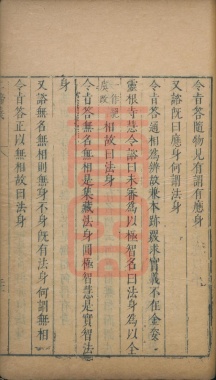 令旨答隨物見有謂有應身
又諮旣曰應身何謂法身
令旨答通相爲辨故兼本跡覈求實義不在金姿
靈根寺慧令諮曰未審爲以極智名曰法身爲以全
相故曰法身
令旨答無名無相是集藏法身圓極智慧是實智法
身
又諮無名無相則無身不身旣有法身何謂無相
令旨答正以無相故曰法身